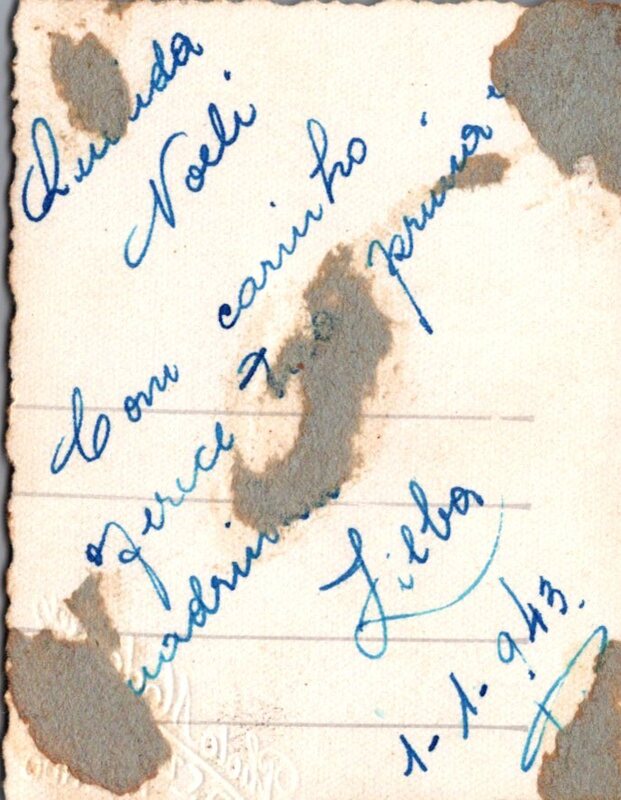 Querida
Noeli
Com carinho
oferece tua prima
madrinha
Zilba
1-1-943.